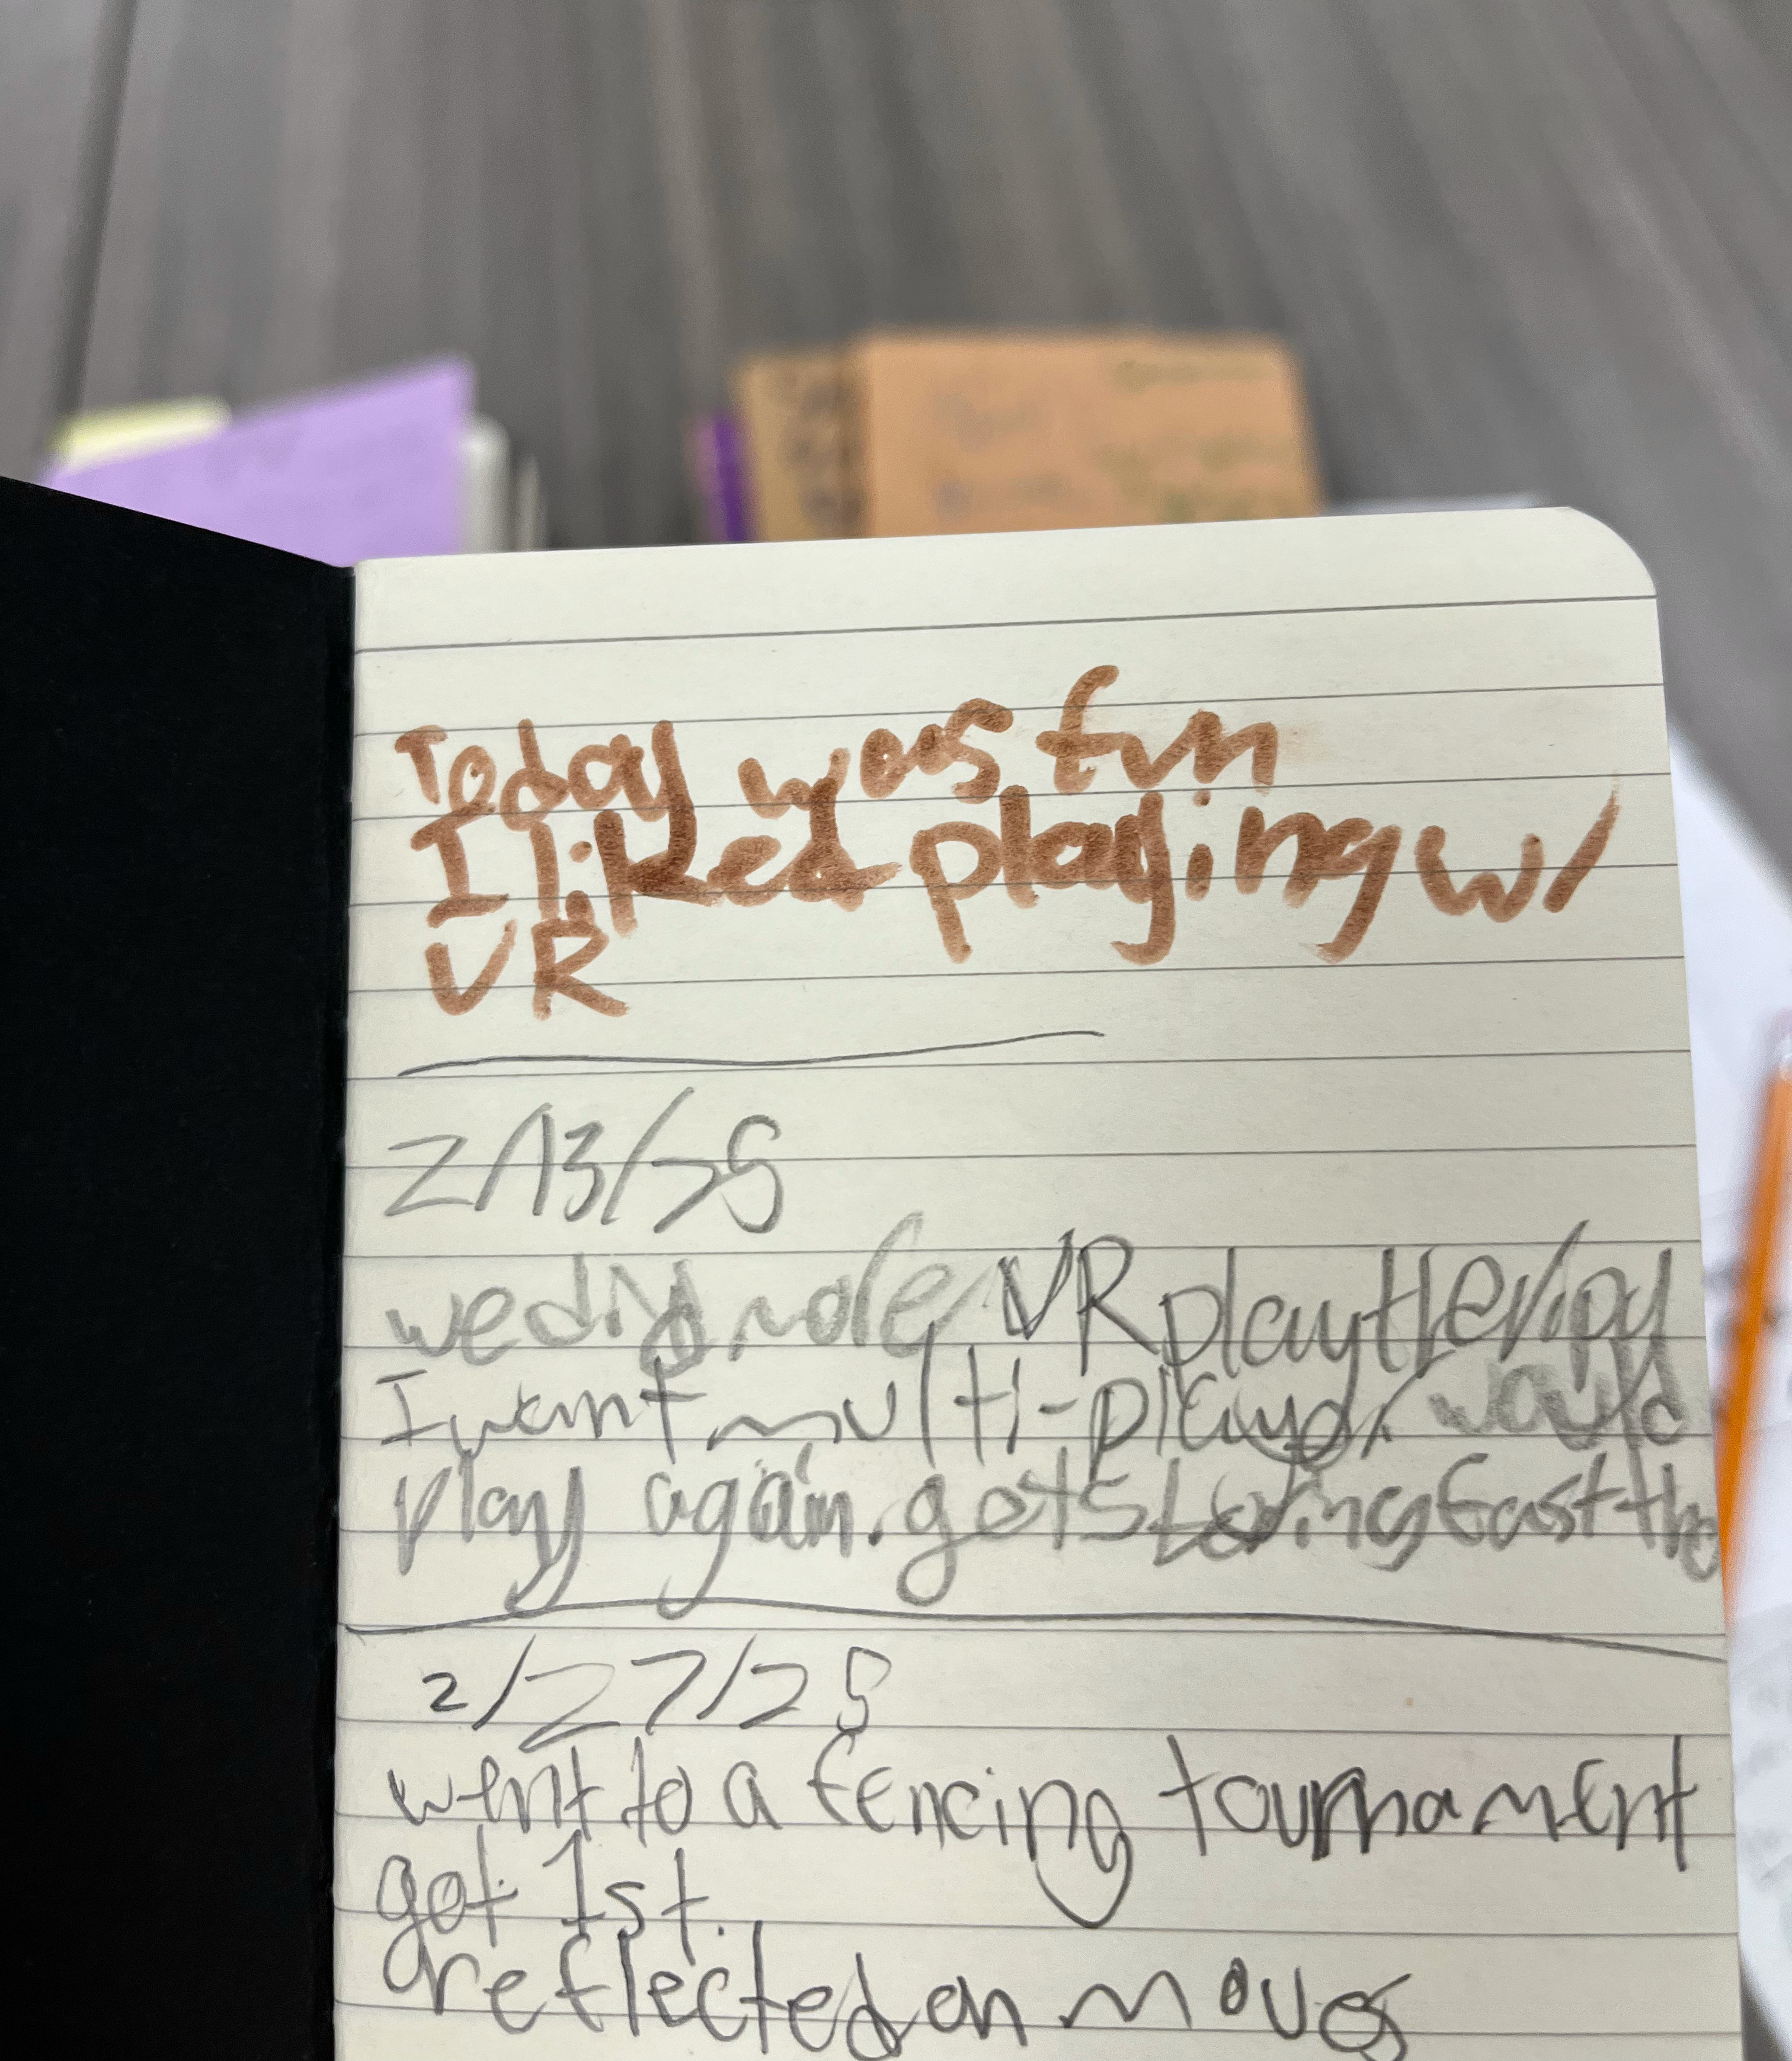 Today was fun
I liked playing w/
VR
2/13/25
we did more VR play theripy
I want multi-player would
play again. gets boring fast tho
2/27/25
went to a fencing tournament
got 1st.
reflected on moves